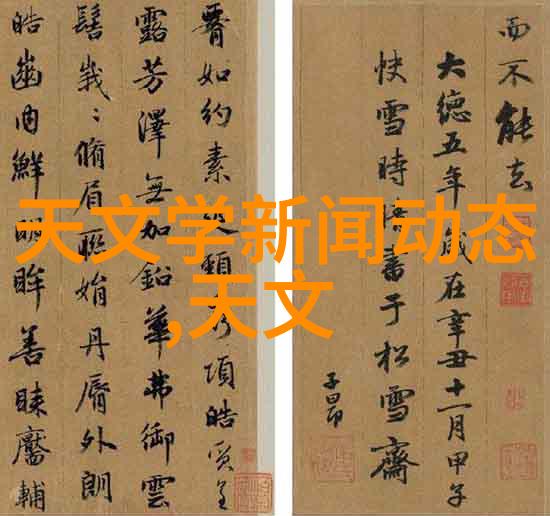 天文学新闻动态
,天文
而不能去
大德五年歲在辛丑十一月甲子
快雪時晴書于松雪齋
子昂
如約素延頸秀項皓質呈
露芳澤無加鉛華弗御雲
髻峩〻脩眉聯娟丹脣外朗
皓齒內鮮明眸善睞靨輔